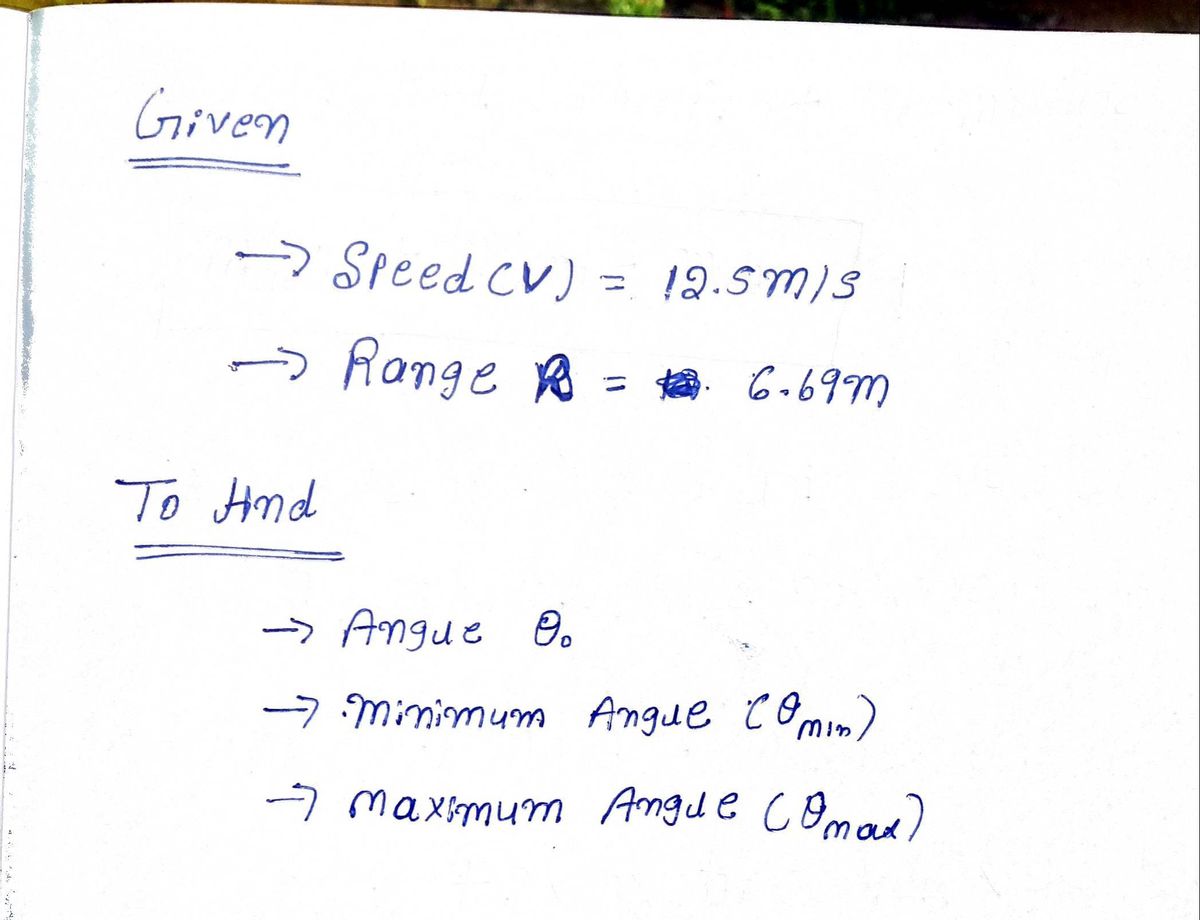 Given
→ Speed (V) = 12.5m/s
→ Range R = 6.69m
To find
→ Angle θ₀
→ minimum Angle (θmin)
→ maximum Angle (θmax)